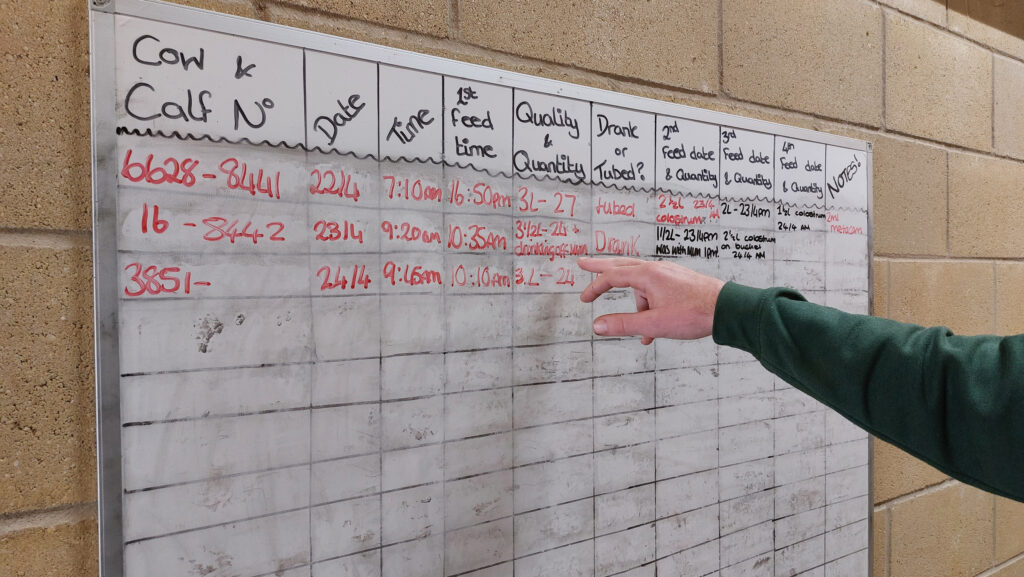 Cow & Calf No
Date
Time
1st Feed time
Quality & Quantity
Drank or Tubed?
2nd Feed date & Quantity
3rd Feed date & Quantity
4th Feed date & Quantity
NOTES!
6628-8441 22/4 7:10am 16:50pm 3L-27 tubed 2½L 23/4 colostrum AM 2L-23/4pm 2½L colostrum 24/4 AM 2ml metacam
16-8442 23/4 9:20am 10:35AM 3½L-24 + drinking off mum Drank 1½L-23/4pm was with mum 1pm. 2½L colostrum on bucket 24/4 AM
3851- 24/4 9:45am 10:10AM 3L-24